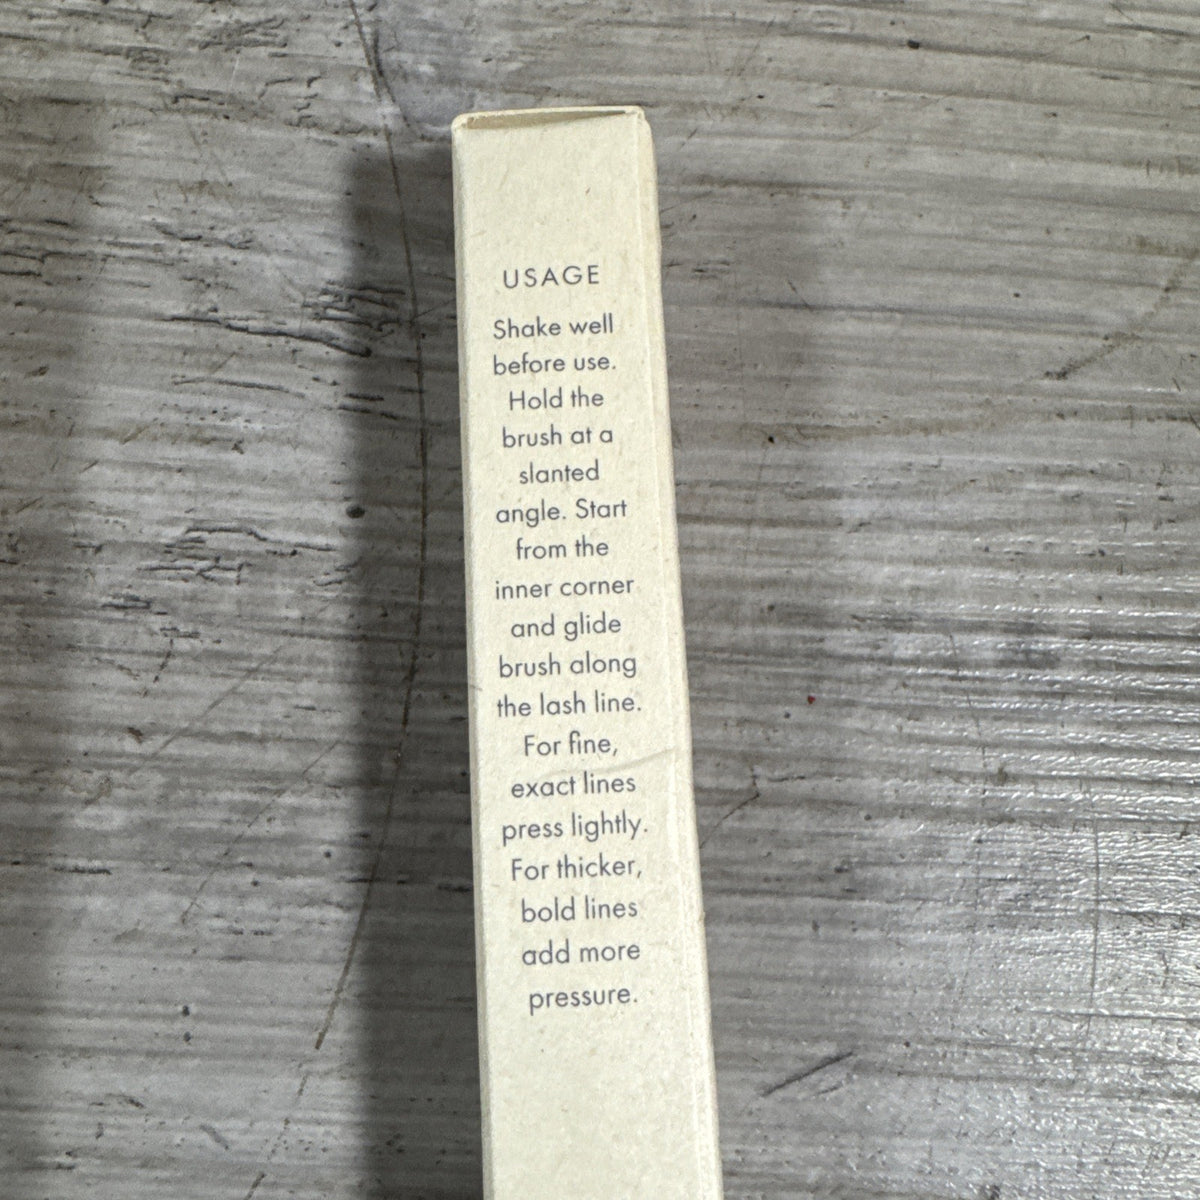 USAGE
Shake well
before use.
Hold the
brush at a
slanted
angle. Start
from the
inner corner
and glide
brush along
the lash line.
For fine,
exact lines
press lightly.
For thicker,
bold lines
add more
pressure.